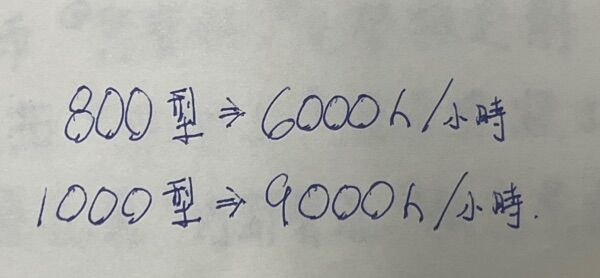 800型⇒6000h/小時
1000型⇒9000h/小時.